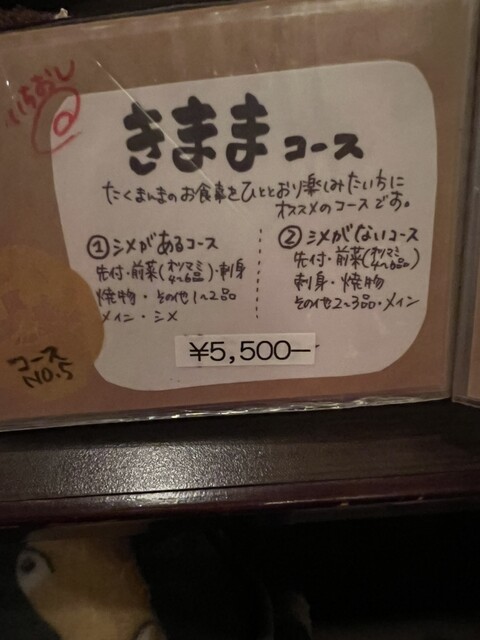 いちおし
きままコース
たくまんまのお食事をひととおり楽しみたい方に
オススメのコースです。
①シメがあるコース
先付・前菜(オツマミ4〜6品)・刺身
焼物・その他1〜2品
メイン・シメ
②シメがないコース
先付・前菜(オツマミ4〜6品)
刺身・焼物
その他2〜3品・メイン
¥5,500―
コース
NO.5